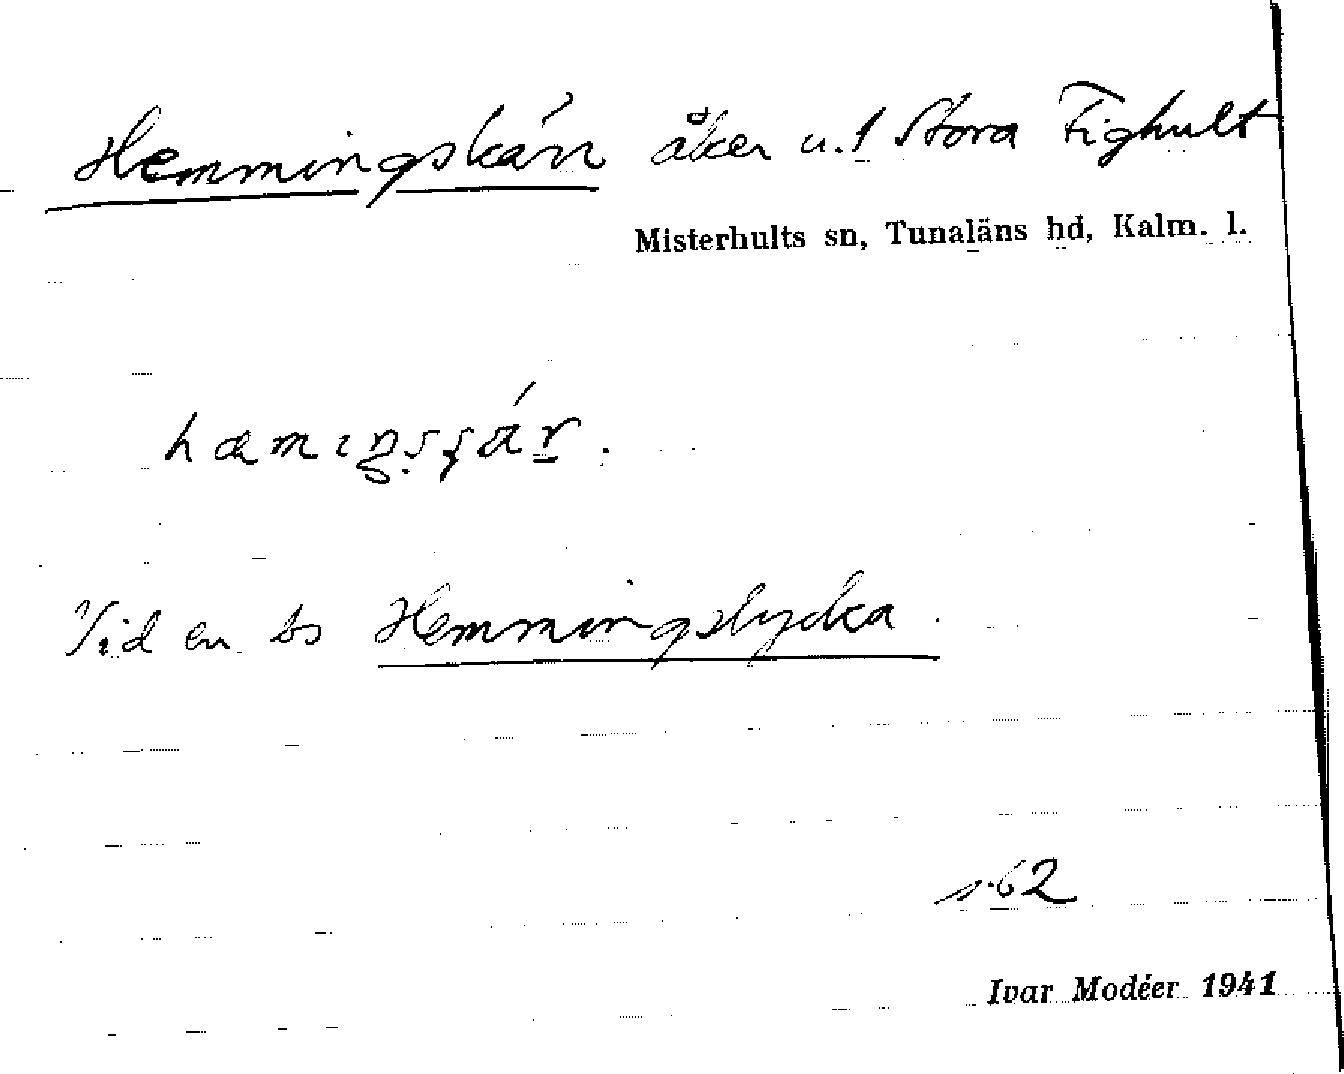 Hemmingskärr åker u. 1 Stora Fighult
Misterhults sn, Tunaläns hd, Kalm. l.
Vid en bs Hemmingslycka.
s. 62
Ivar Modéer 1941